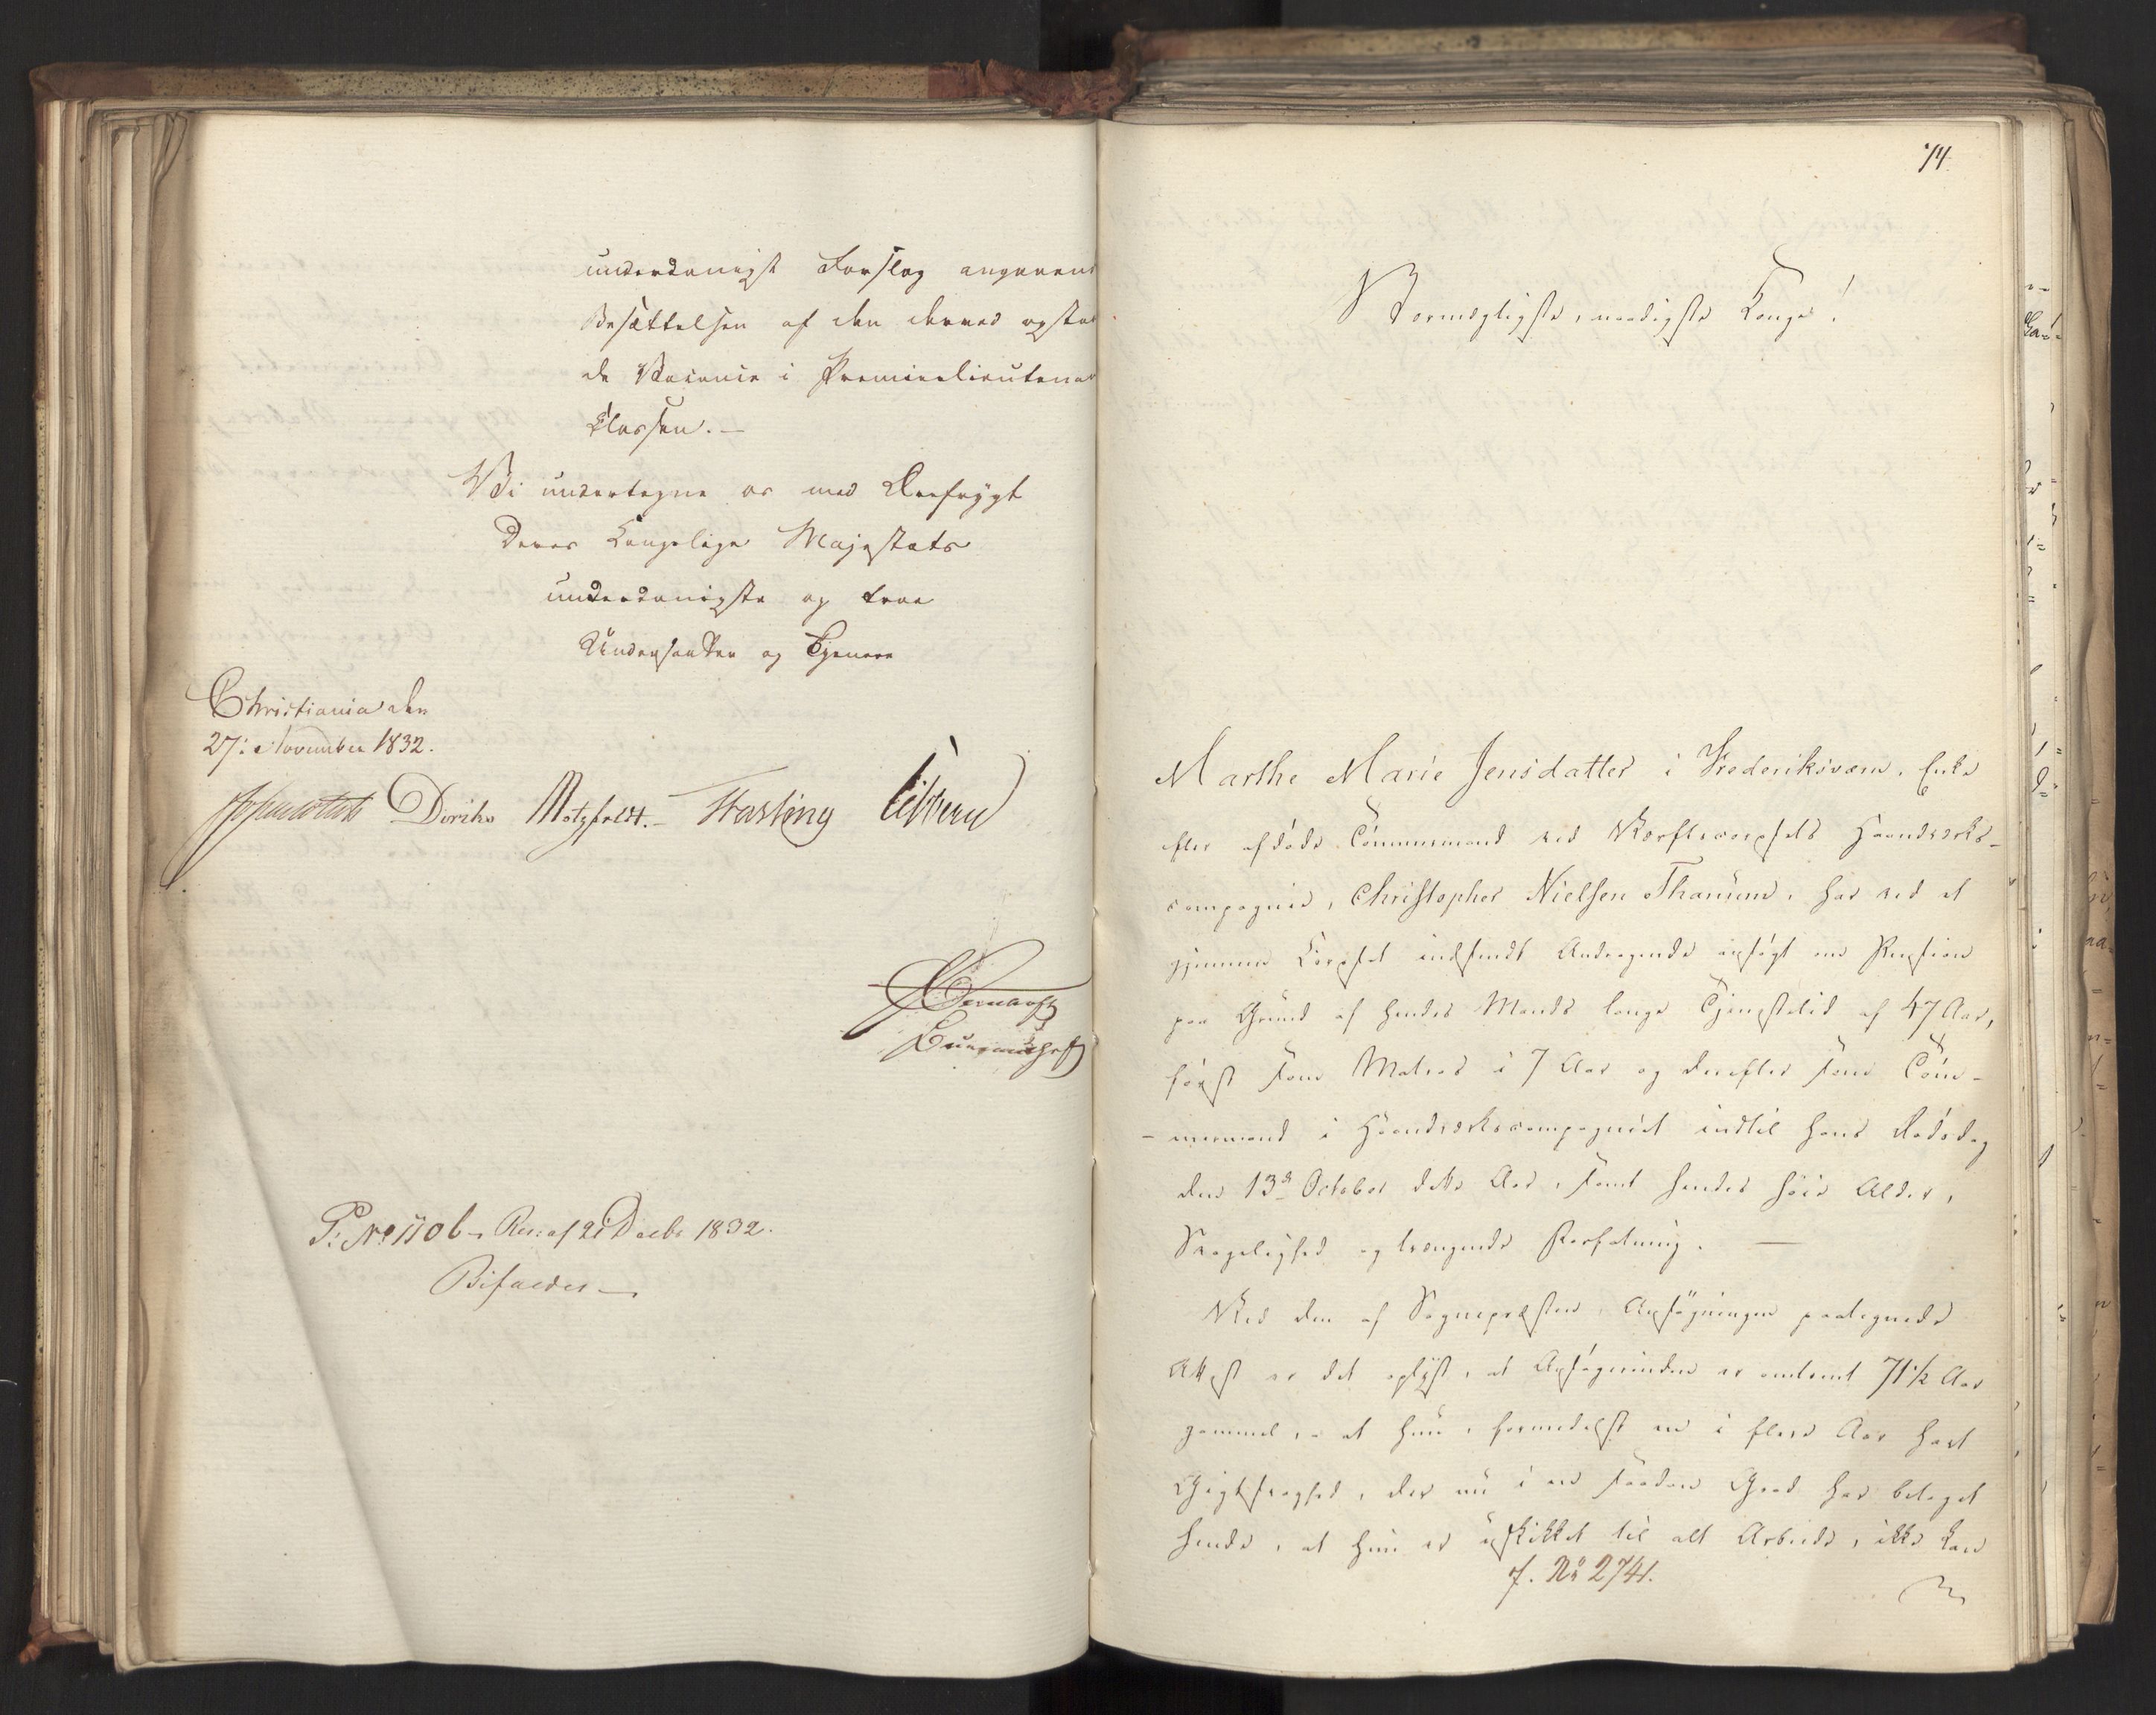 underdanigst Forslag angaaend
Besættelsen af den derved opstaa
de Vacance i Premierlieutenan
Classen. —
Vi undertegne os med Ærefrygt
Deres Kongelige Majestæts
underdanigste og troe
Undersaatter og Tjenere
Christiania den
27: November 1832.
Diriks Motzfeldt. Fasting Sibbern
P: No 1106 — Res: af 21 Decbr 1832.
Bifaldes —
74.
Stormægtigste, naadigste Konge!
Marthe Marie Jensdatter i Frederiksværn, Enke
efter afdøde Tømmermand ved Værftscorpsets Haandværks-
compagnie, Christopher Nielsen Thanum, har ved et
gjennem Corpset indsendt Andragende ansøgt om Pension
paa Grund af hendes Mands lange Tjenestetid af 47 Aar,
først som Matros i 7 Aar og derefter som Tøm-
-mermand i Haandværkscompagniet indtil hans Dødsdag
den 13de October dette Aar, samt hendes høie Alder,
Svagelighed og trængende Forfatning. —
Ved den af Sognepræsten Ansøgningen paategnede
Attest er det oplyst, at Ansøgerinden er omtrent 71½ Aar
gammel, - at hun, formedelst en i flere Aar havt
Gigtsvaghed, der nu i en saadan Grad har betaget
hende, at hun er uskikket til alt Arbeide, ikke kan
f. No 274.